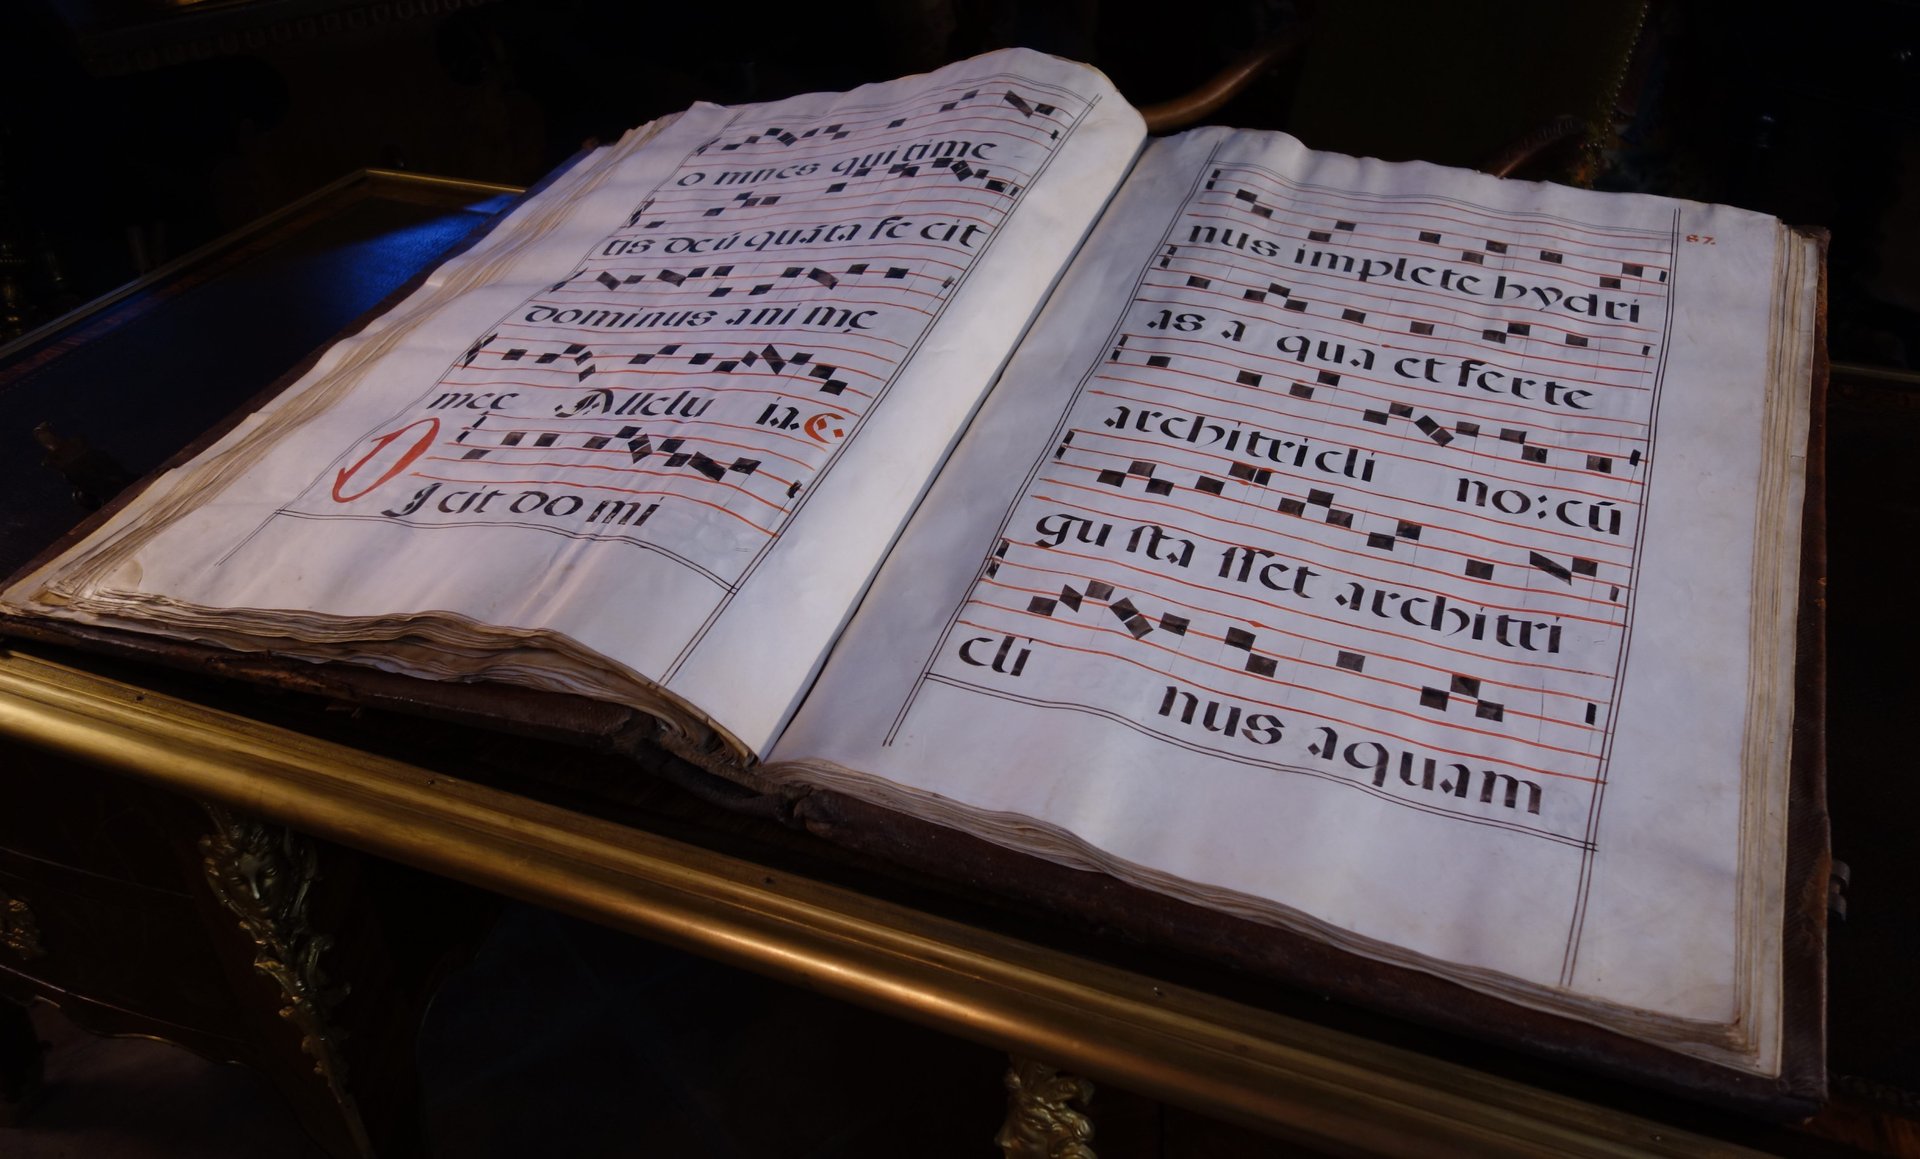 o mnes qui time
tis deū quāta fe cit
dominus ani mę
meę Allelu ia. C.
D
I cit do mi
87.
nus implete hydri
as a qua et ferte
architricli no: cū
gu sta sset architri
cli nus aquam